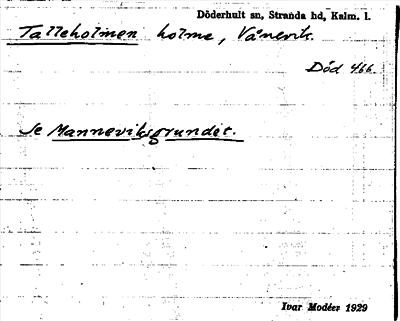 Döderhult sn, Stranda hd, Kalm. l.
Talleholmen holme, Vånevik.
Död 466.
Se Manneviksgrundet.
Ivar Modéer 1929